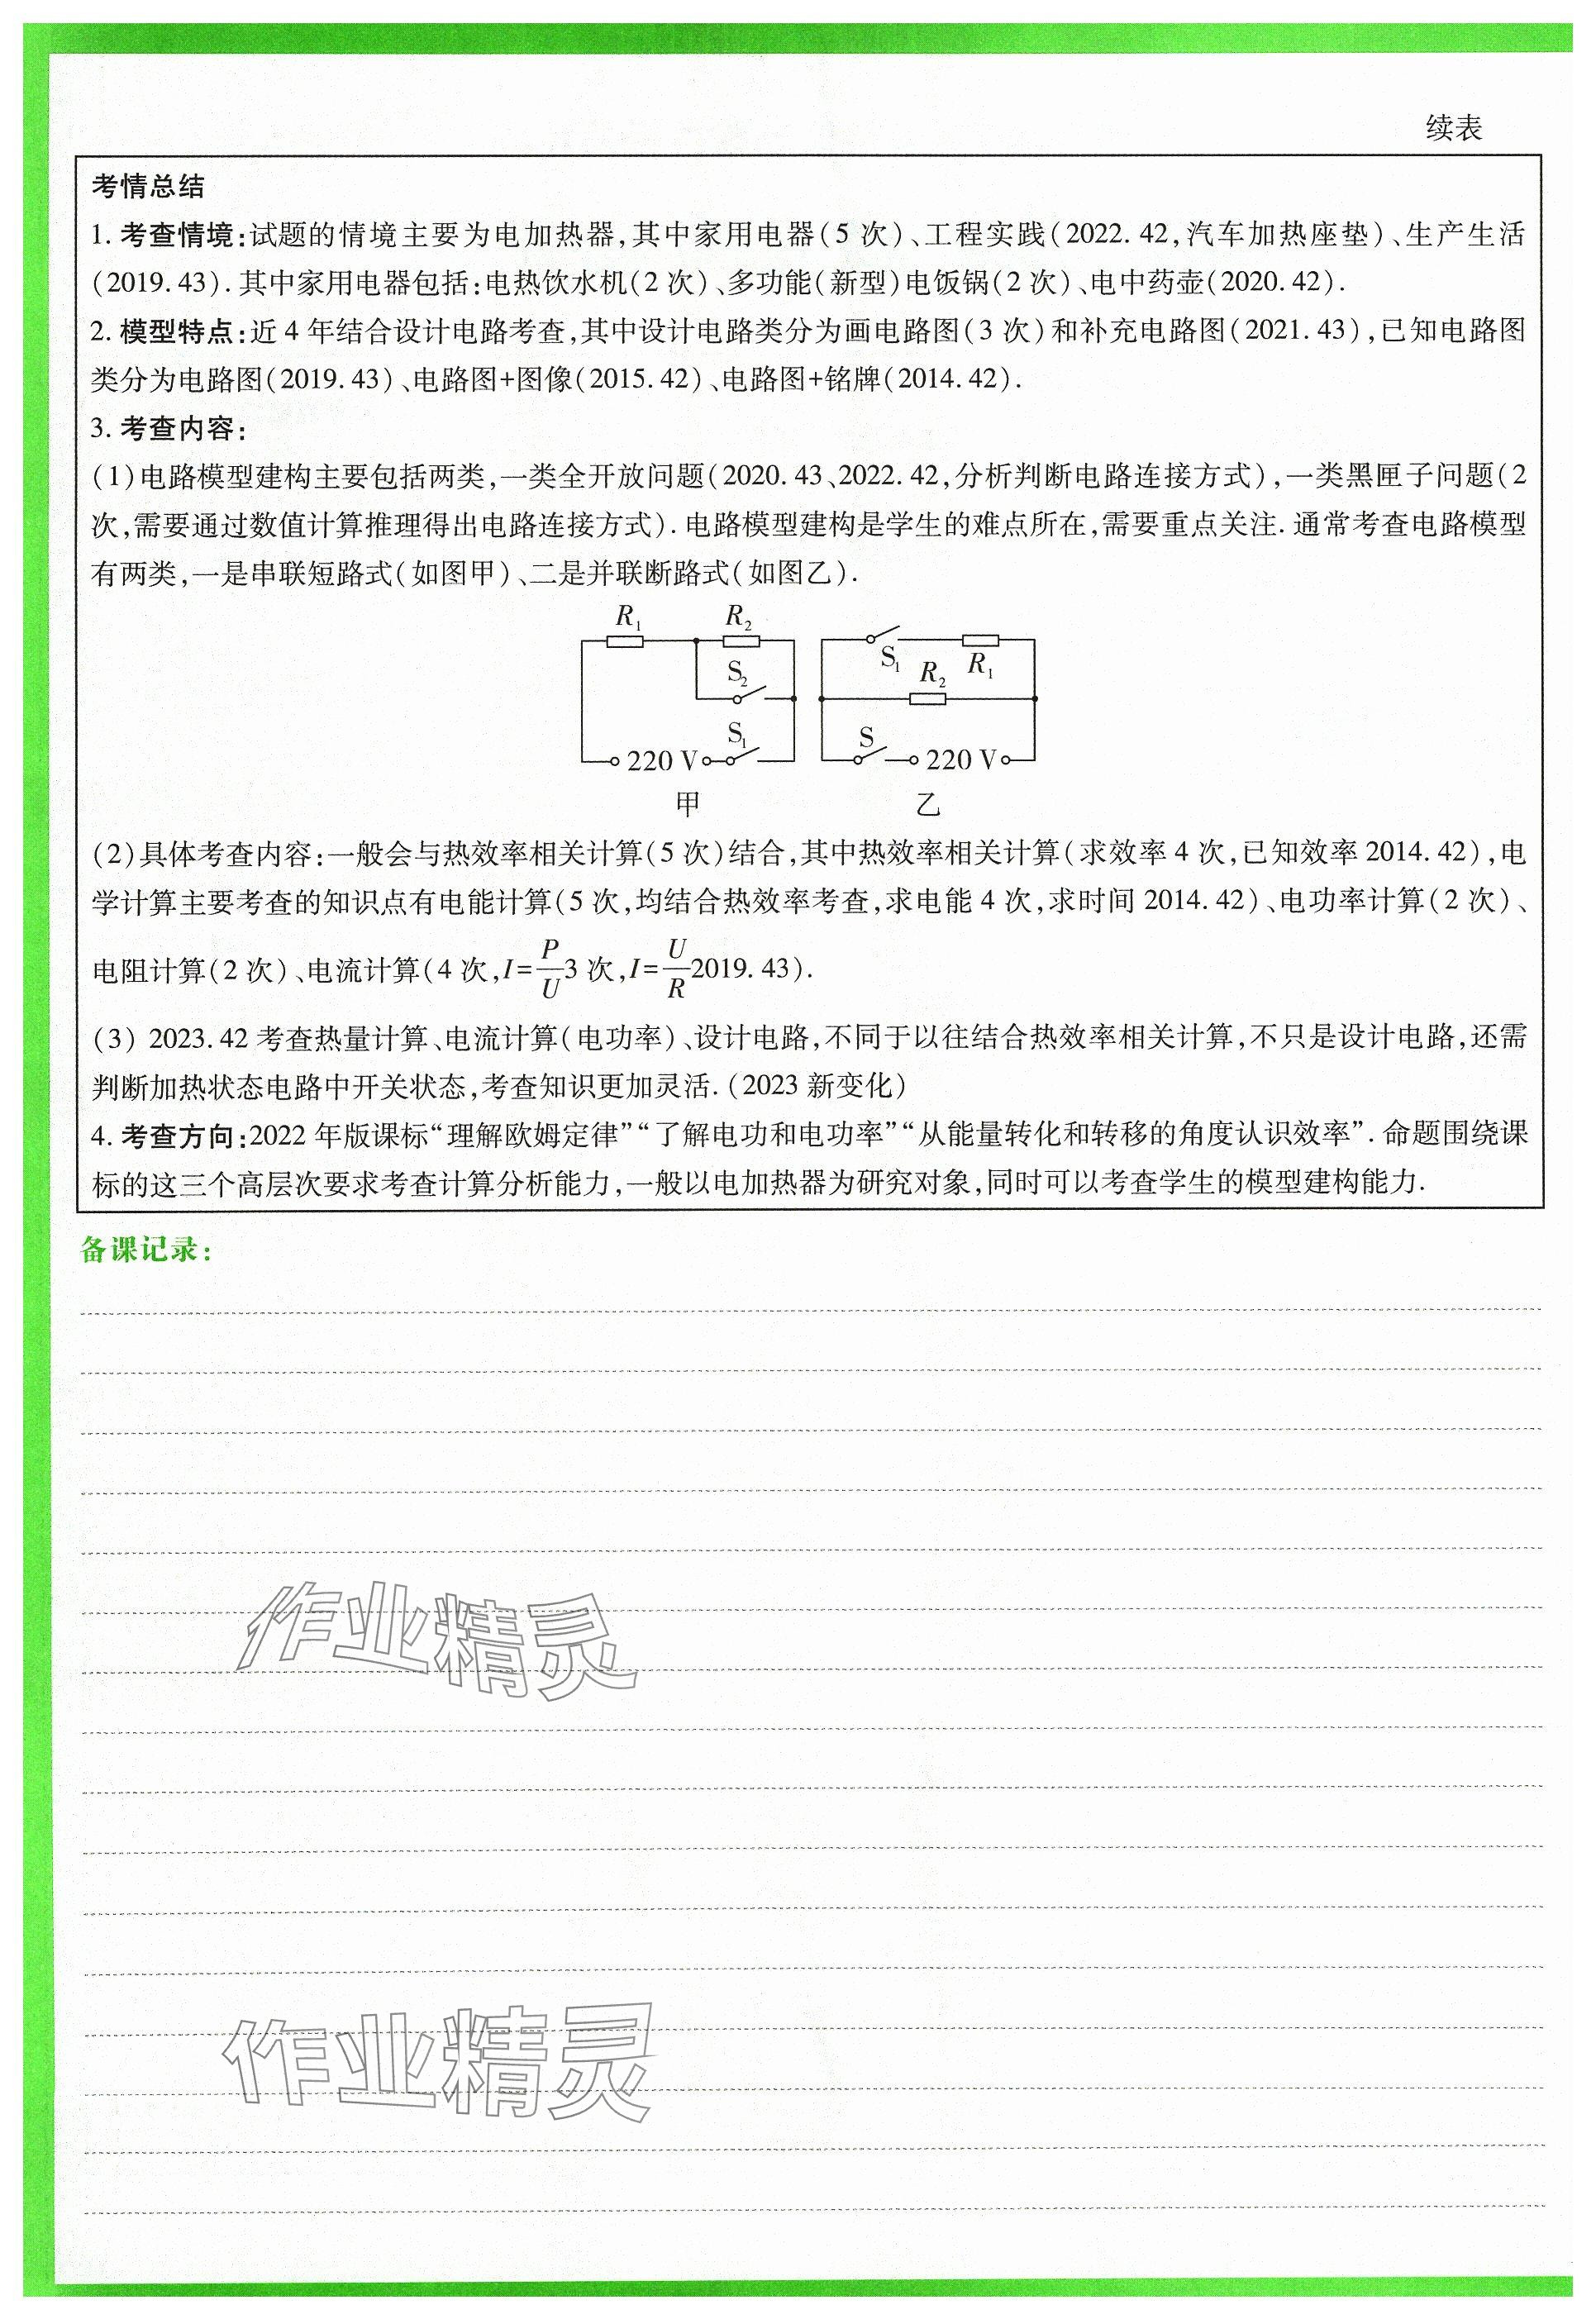 续表
考情总结
1. 考查情境:试题的情境主要为电加热器,其中家用电器(5 次)、工程实践(2022. 42,汽车加热座垫)、生产生活
(2019. 43). 其中家用电器包括:电热饮水机(2 次)、多功能(新型)电饭锅(2 次)、电中药壶(2020. 42).
2. 模型特点:近 4 年结合设计电路考查,其中设计电路类分为画电路图(3 次)和补充电路图(2021. 43),已知电路图
类分为电路图(2019. 43)、电路图+图像(2015. 42)、电路图+铭牌(2014. 42).
3. 考查内容:
(1)电路模型建构主要包括两类,一类全开放问题(2020. 43、2022. 42,分析判断电路连接方式),一类黑匣子问题(2
次,需要通过数值计算推理得出电路连接方式). 电路模型建构是学生的难点所在,需要重点关注. 通常考查电路模型
有两类,一是串联短路式(如图甲)、二是并联断路式(如图乙).
R₁ R₂
S₂
S₁
220 V
甲
S₁ R₁
R₂
S
220 V
乙
(2)具体考查内容:一般会与热效率相关计算(5 次)结合,其中热效率相关计算(求效率 4 次,已知效率 2014. 42),电
学计算主要考查的知识点有电能计算(5 次,均结合热效率考查,求电能 4 次,求时间 2014. 42)、电功率计算(2 次)、
电阻计算(2 次)、电流计算(4 次,I=P/U3 次,I=U/R2019. 43).
(3) 2023. 42 考查热量计算、电流计算(电功率)、设计电路,不同于以往结合热效率相关计算,不只是设计电路,还需
判断加热状态电路中开关状态,考查知识更加灵活. (2023 新变化)
4. 考查方向:2022 年版课标“理解欧姆定律”“了解电功和电功率”“从能量转化和转移的角度认识效率”. 命题围绕课
标的这三个高层次要求考查计算分析能力,一般以电加热器为研究对象,同时可以考查学生的模型建构能力.
备课记录:
作业精灵
作业精灵